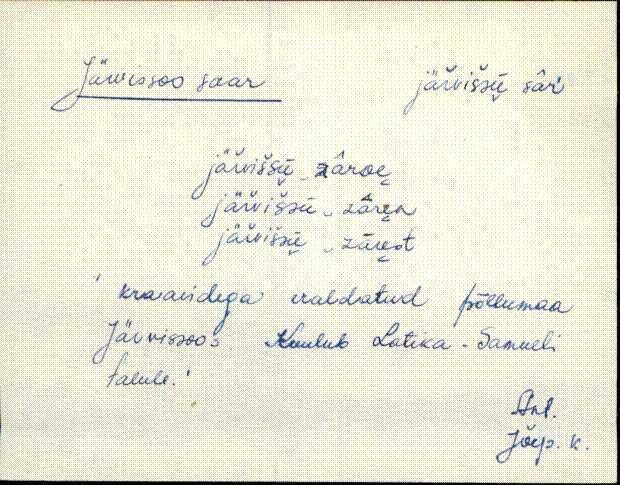 Järvissoo saar järvišsū̬ sâr
järvišsū̬ ‿zâroe̬
järvišsū̬ ‿zâre̬n
järvišsū̬ ‿zâre̬t
' kraavidega eraldatud põllumaa
Järvissoos. Kuulub Latika-Samueli
talule.'
Anl.
Jõep. k.